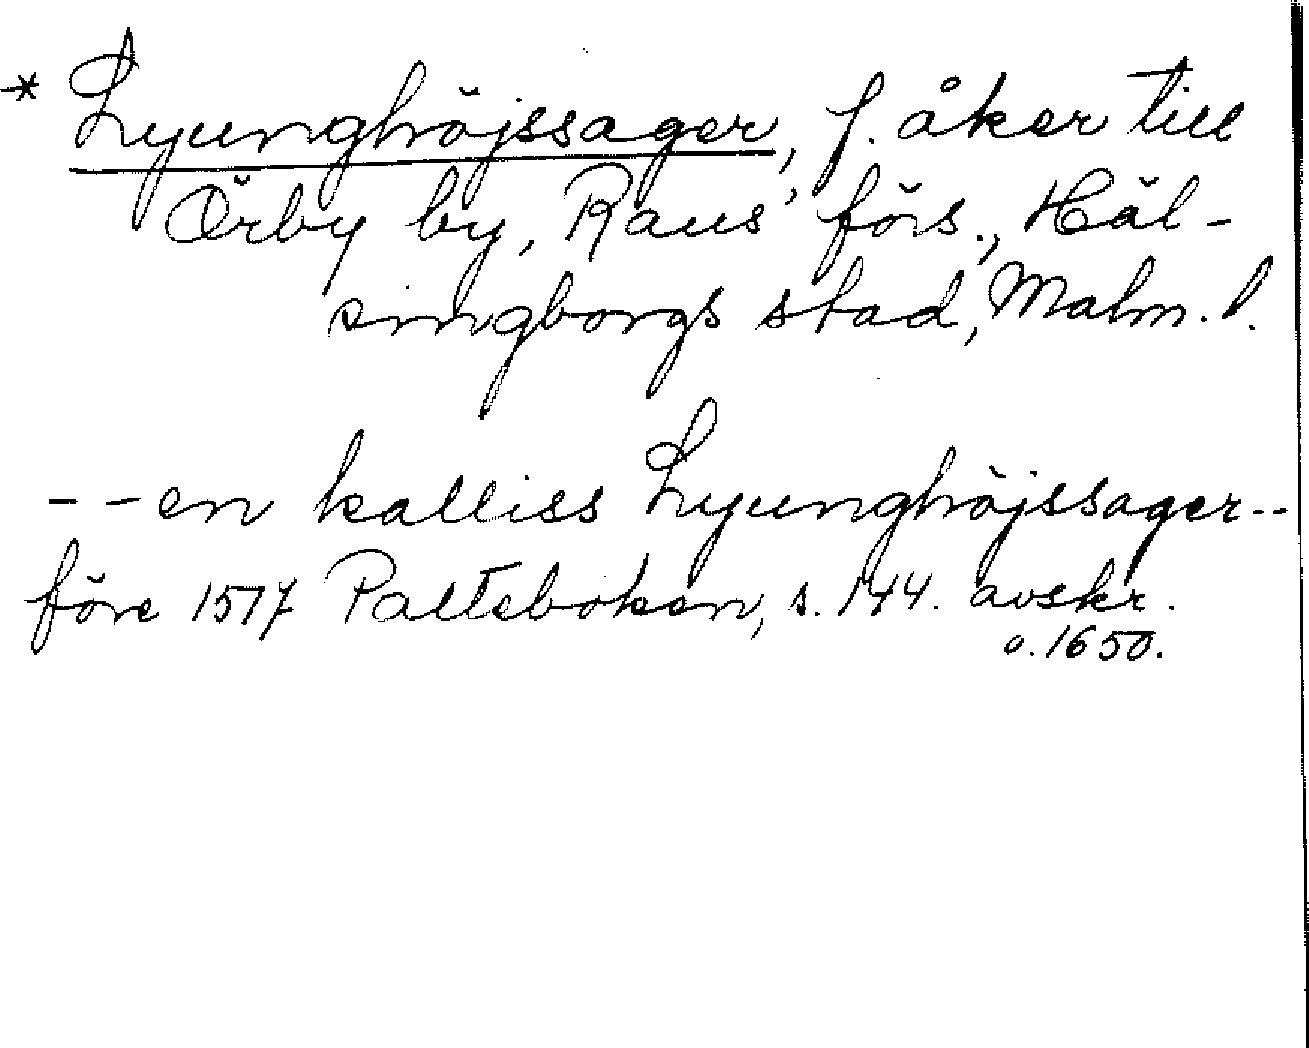 * Lyunghöjssager, f. åker till
Örby by, Raus' förs., Häl-
singborgs stad, Malm. l.
- - en kalliss Lyunghöjssager - -
före 1517 Palteboken, s. 144. avskr.
o. 1650.